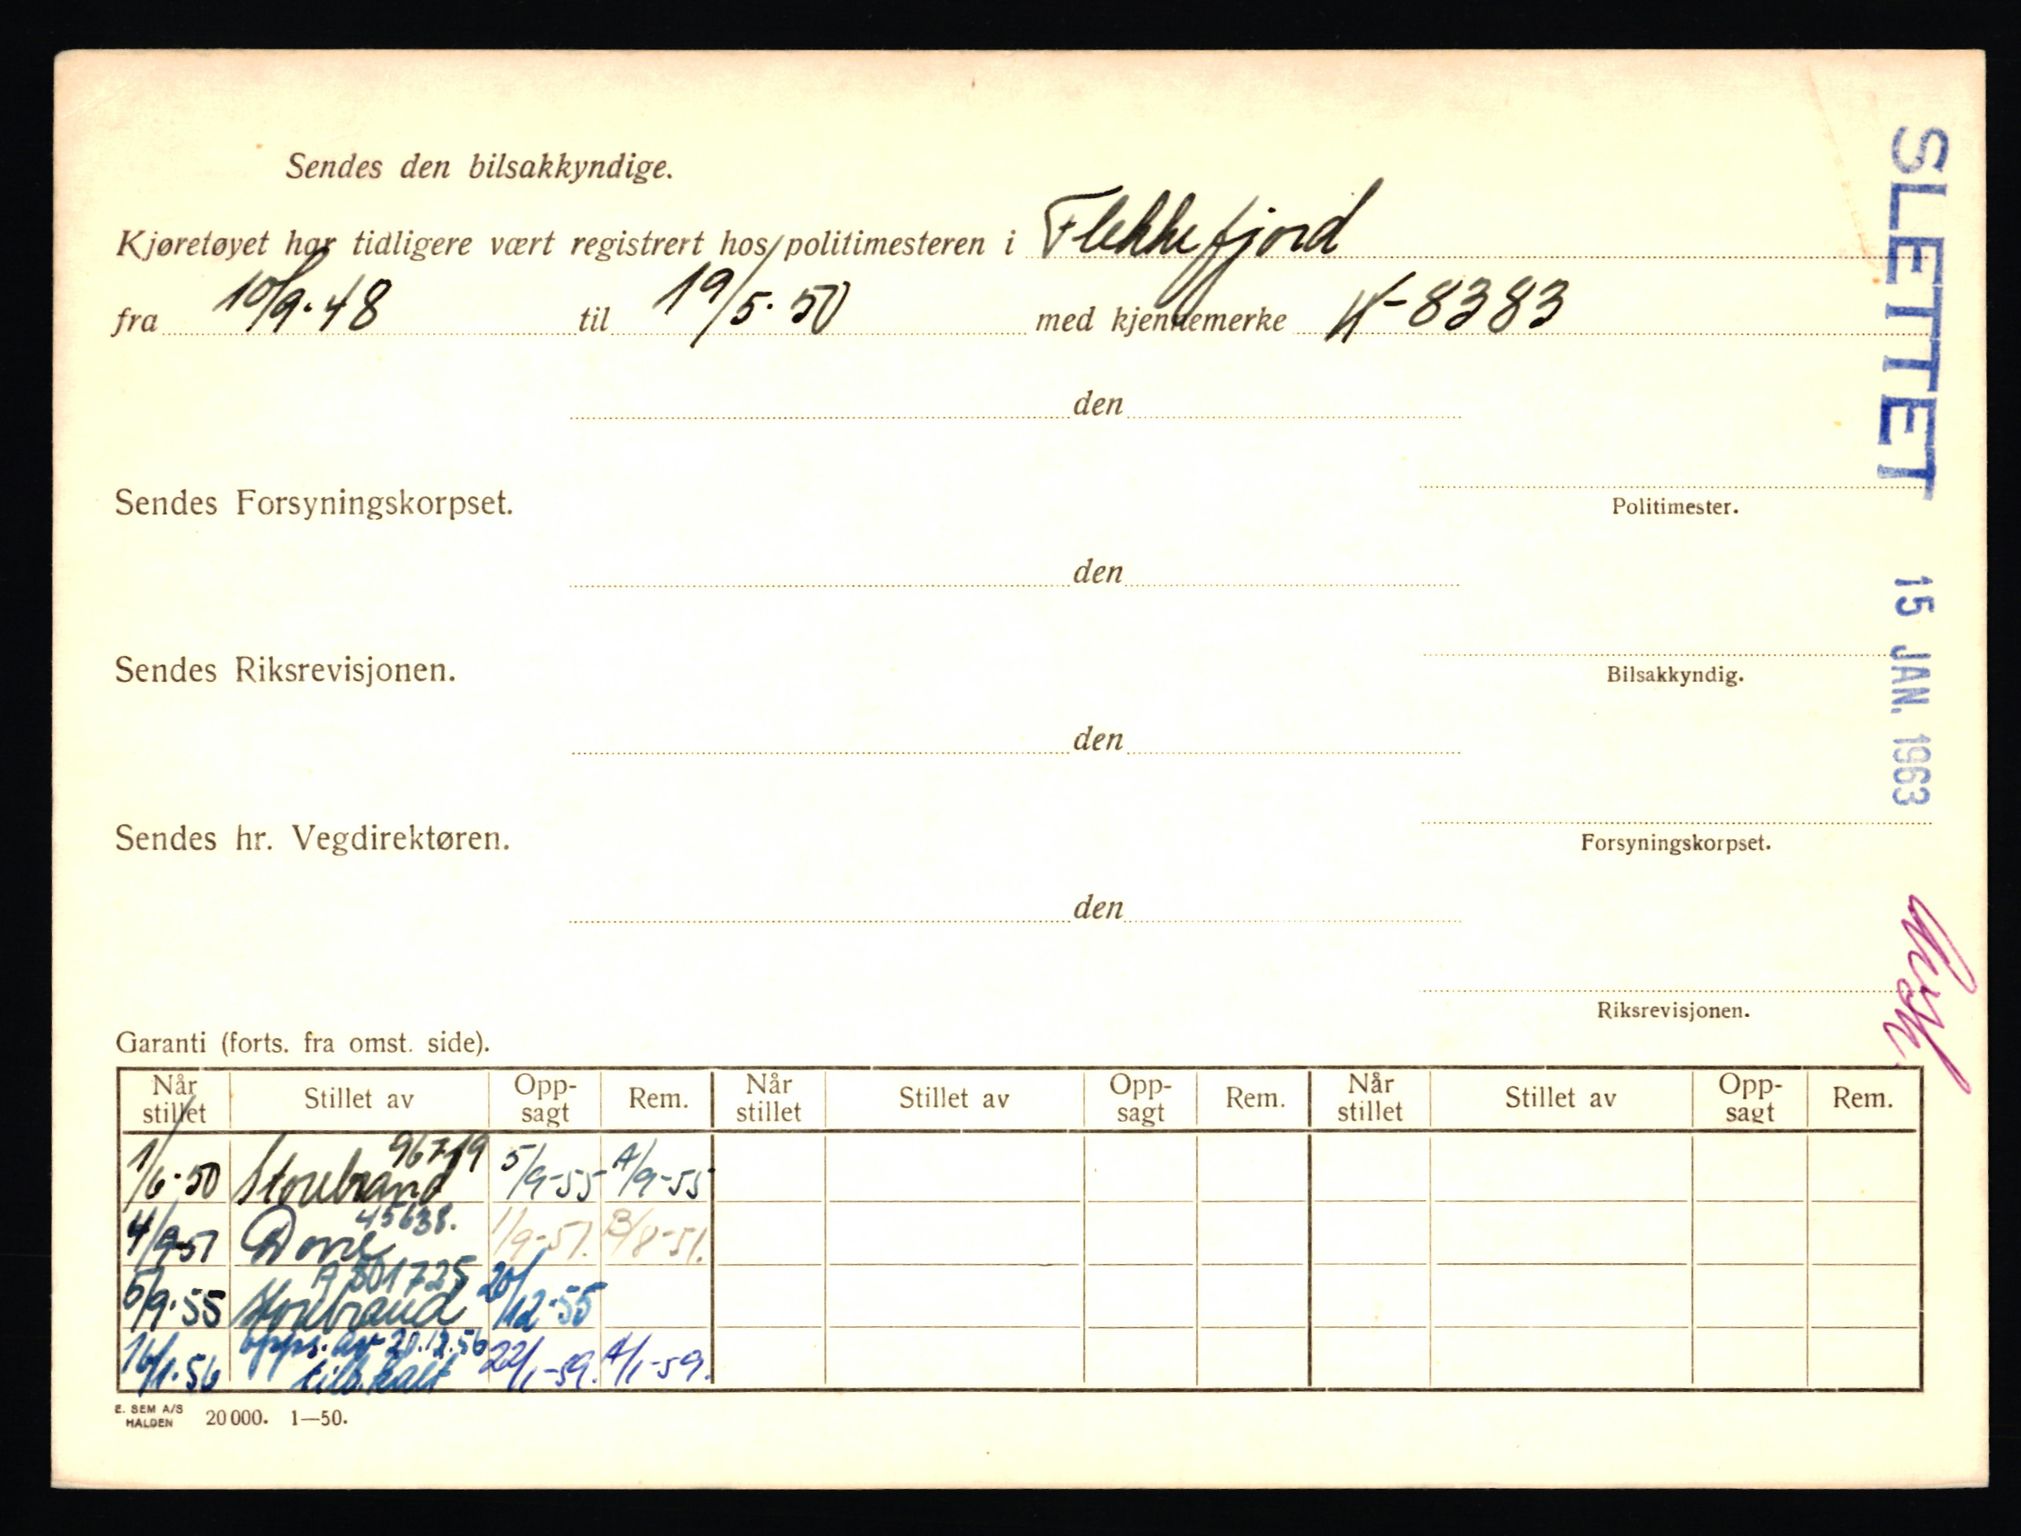 Sendes den bilsakkyndige.
Kjøretøyet har tidligere vært registrert hos politimesteren i Flekkefjord
fra 10/9.48 til 19/5.50 med kjennemerke K-8383
den
Sendes Forsyningskorpset.
Politimester.
den
Sendes Riksrevisjonen.
Bilsakkyndig.
den
Sendes hr. Vegdirektøren.
Forsyningskorpset.
den
Riksrevisjonen.
SLETTET 15 JAN. 1963
Garanti (forts. fra omst. side).
Når stillet Stillet av Opp-sagt Rem. Når stillet Stillet av Opp-sagt Rem. Når stillet Stillet av Opp-sagt Rem.
96719
1/6-50 Storebrand 5/9-55 A/9-55
45638.
4/9-51 Dovre 1/9-51. B/8-51.
5/9.55 Storebrand 20/12-55
opps. av 20.12.56
16/1.56 tilb.kalt 22/1-59. A/1-59.
E. SEM A/S
HALDEN 20 000. 1—50.